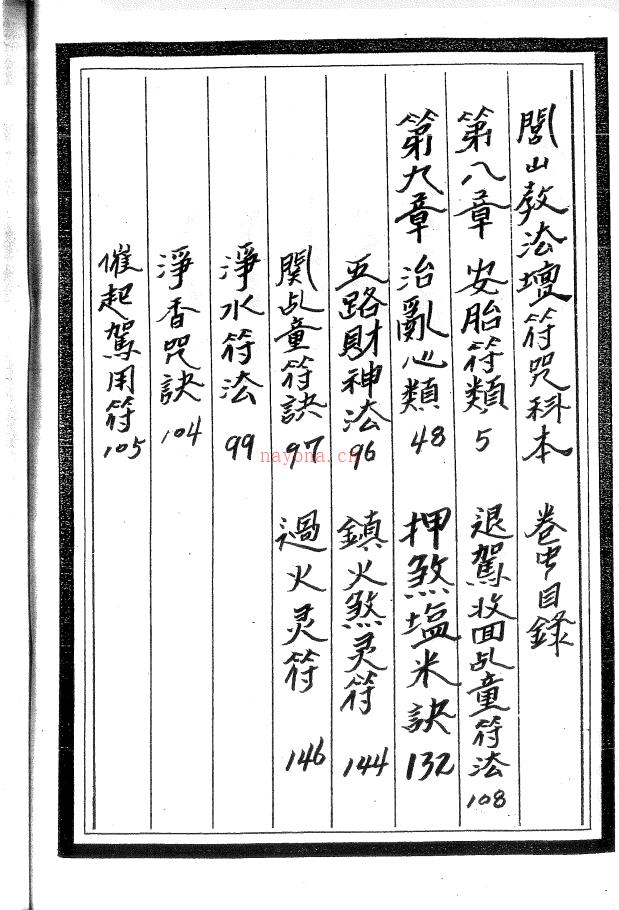 閭山教法壇符咒科本 卷中目錄
第八章 安胎符類 5
退駕收回乩童符法 108
第九章 治亂心類 48
押煞塩米訣 132
五路財神法 96
鎮火煞灵符 144
関乩童符訣 97
過火灵符 146
淨水符法 99
淨香咒訣 104
催起駕用符 105
nayona.cn